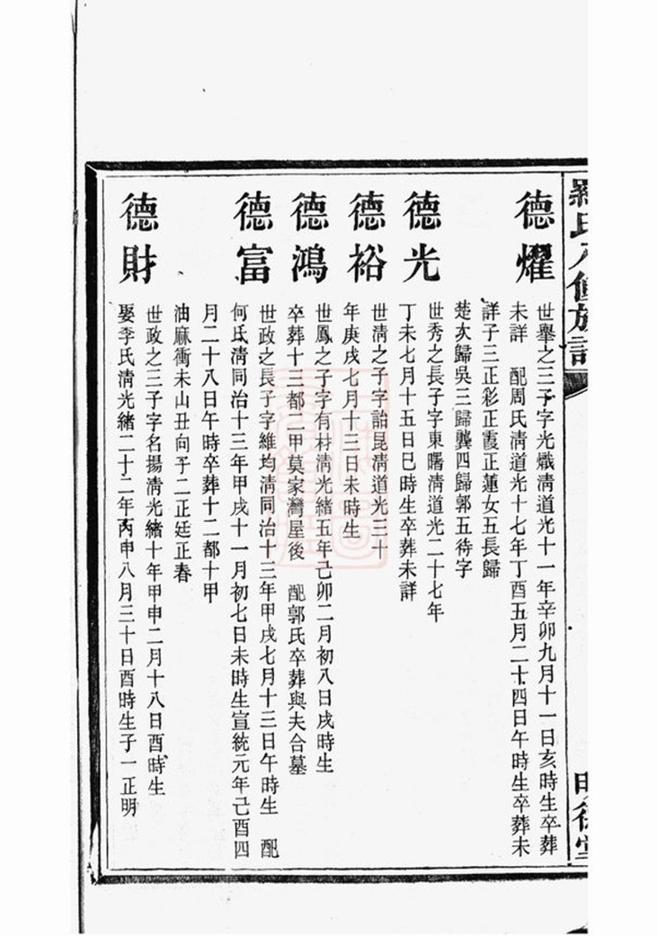 羅氏八修族譜
明德堂
德燿
世舉之三子字光熾清道光十一年辛卯九月十一日亥時生卒葬
未詳 配周氏清道光十七年丁酉五月二十四日午時生卒葬未
詳子三正彩正霞正蓮女五長歸
楚次歸吳三歸龔四歸郭五待字
德光
世秀之長子字東曙清道光二十七年
丁未七月十五日巳時生卒葬未詳
德裕
世清之子字詒昆清道光三十
年庚戌七月十三日未時生
德鴻
世鳳之子字有材清光緒五年己卯二月初八日戌時生
卒葬十三都二甲莫家灣屋後 配郭氏卒葬與夫合墓
德富
世政之長子字維均清同治十三年甲戌七月十三日午時生 配
何氏清同治十三年甲戌十一月初七日未時生宣統元年己酉四
月二十八日午時卒葬十二都十甲
油麻衝未山丑向子二正廷正春
德財
世政之三子字名揚清光緒十年甲申二月十八日酉時生
娶李氏清光緒二十二年丙申八月三十日酉時生子一正明